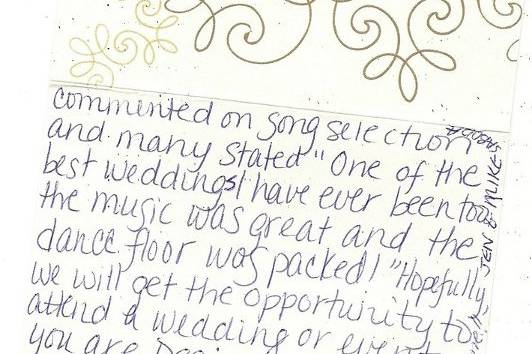 commented on song selection
and many stated "One of the
best weddings I have ever been too
the music was great and the
dance floor was packed!" Hopefully,
we will get the opportunity to
attend a wedding or event
you are
JEN & MIKE